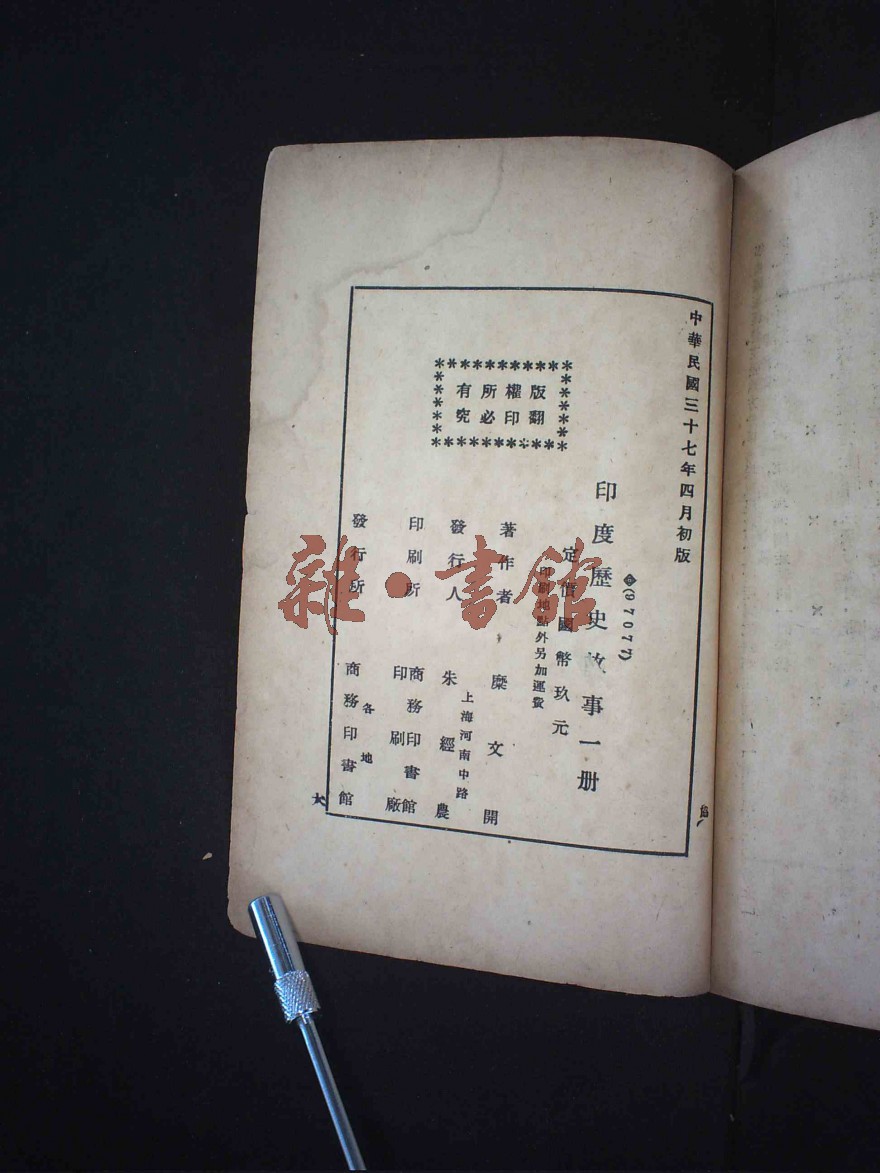 中華民國三十七年四月初版
(97077)
印度歷史故事一册
定價國幣玖元
印刷地點外另加運費
版權所有
翻印必究
著作者 糜文開
上海河南中路
發行人 朱經農
印刷所 商務印書館印刷廠
各地
發行所 商務印書館
雜·書館